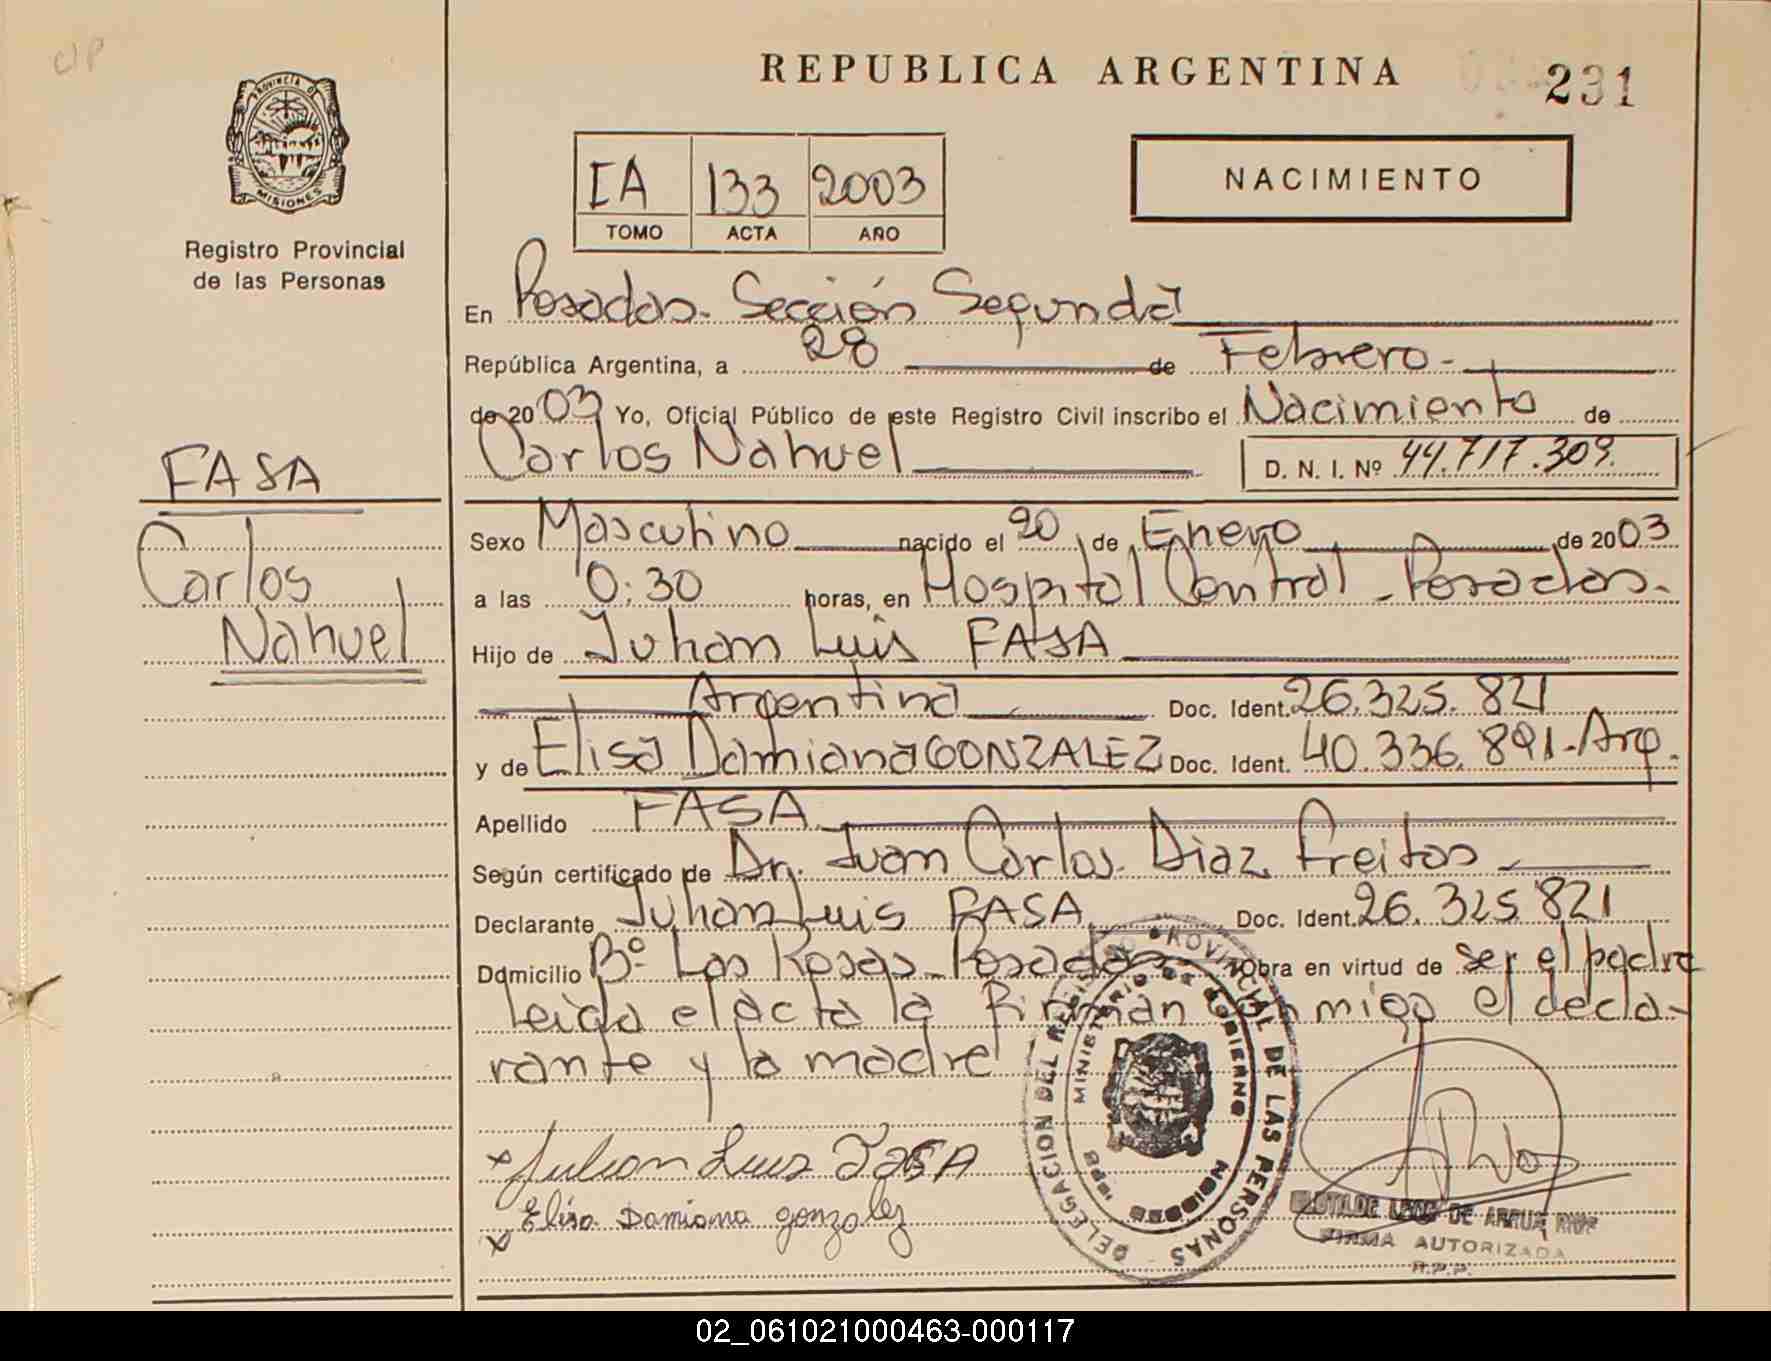 UP
REPUBLICA ARGENTINA
231
PROVINCIA DE MISIONES
Registro Provincial
de las Personas
IA 133 2003
TOMO ACTA AÑO
NACIMIENTO
En Posadas. Sección Segunda
República Argentina, a 28 de Febrero.
de 2003 Yo, Oficial Público de este Registro Civil inscribo el Nacimiento de
Carlos Nahuel D. N. I. Nº 44.717.309.
FASA
Carlos
Nahuel
Sexo Masculino nacido el 20 de Enero de 2003
a las 0:30 horas, en Hospital Central - Posadas.
Hijo de Julian Luis FASA
Argentina Doc. Ident. 26.325.821
y de Elisa Damiana GONZALEZ Doc. Ident. 40.336.891-Arg.
Apellido FASA
Según certificado de Dr. Juan Carlos Diaz Freitas
Declarante Julian Luis FASA Doc. Ident. 26.325.821
Domicilio Bº Las Rosas - Posadas Obra en virtud de ser el padre
Leida el acta la firman conmigo el decla-
rante y la madre
x Julian Luis FASA
x Elisa Damiana gonzalez
DELEGACION DEL REGISTRO PROVINCIAL DE LAS PERSONAS
MINISTERIO DE GOBIERNO
MISIONES
DE ARRUA
FIRMA AUTORIZADA
R.P.P.
02_061021000463-000117